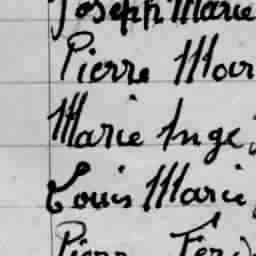 Joseph Marie
Pierre Mar
Marie Ange
Louis Marie
Pierr Fer